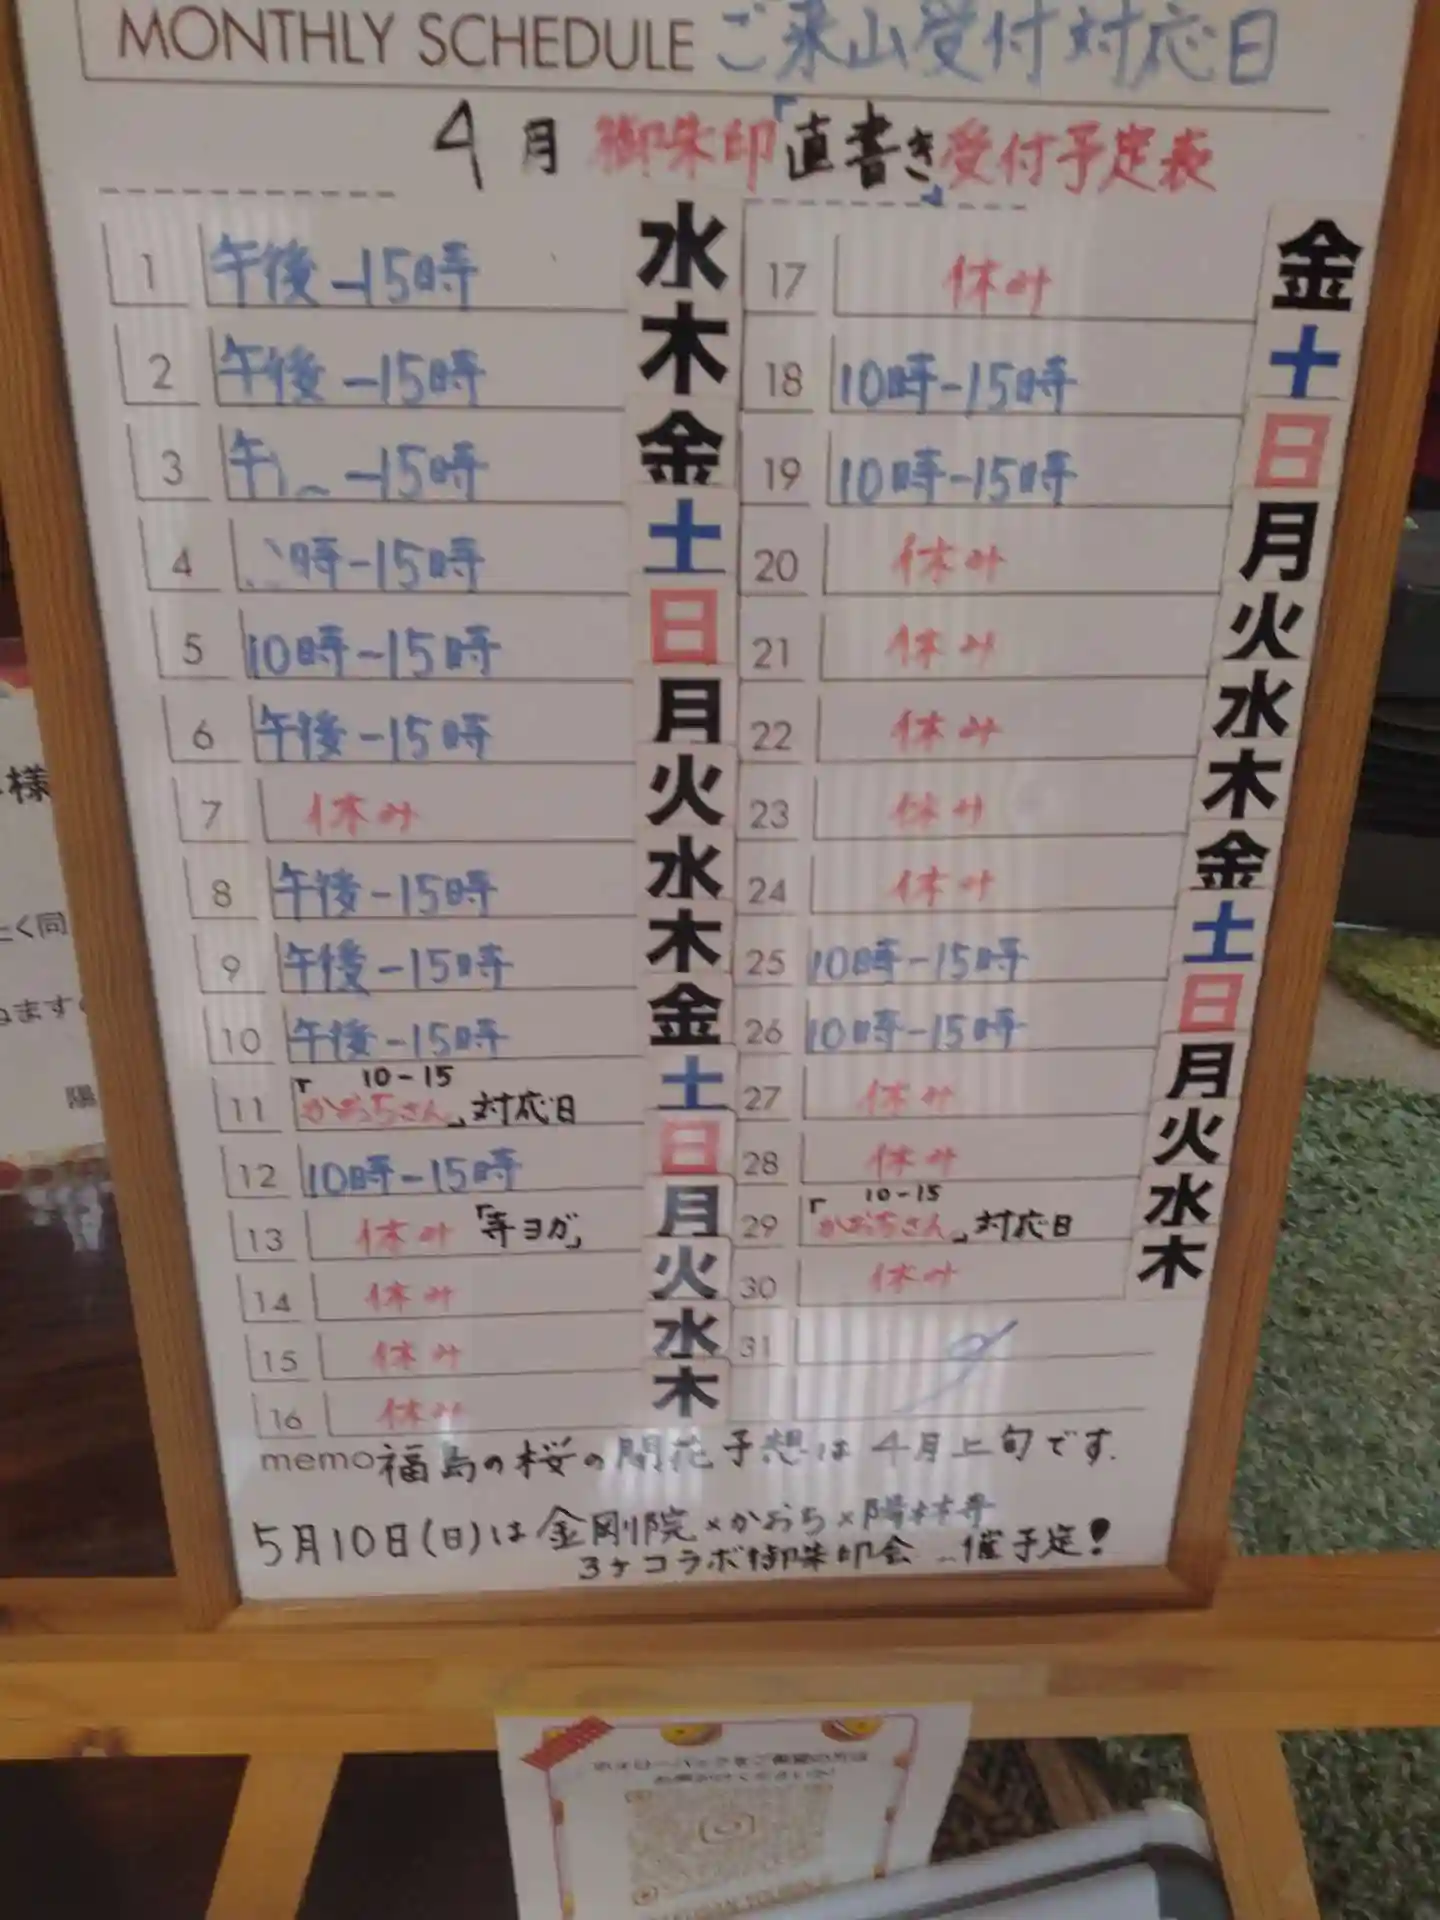 MONTHLY SCHEDULE ご来山受付対応日
4月 御朱印「直書き」受付予定表
1 午後-15時 水
2 午後-15時 木
3 午 -15時 金
4 時-15時 土
5 10時-15時 日
6 午後-15時 月
7 休み 火
8 午後-15時 水
9 午後-15時 木
10 午後-15時 金
11 「かおちさん」対応日 10-15 土
12 10時-15時 日
13 休み「寺ヨガ」 月
14 休み 火
15 休み 水
16 休み 木
17 休み 金
18 10時-15時 土
19 10時-15時 日
20 休み 月
21 休み 火
22 休み 水
23 休み 木
24 休み 金
25 10時-15時 土
26 10時-15時 日
27 休み 月
28 休み 火
29 「かおちさん」対応日 10-15 水
30 休み 木
31
memo 福島の桜の開花予想は4月上旬です.
5月10日(日)は金剛院×かおち×陽林寺
3ヶコラボ御朱印会 催予定!
様
く同
ます
陽
フォローバックをご希望の方は
お声がけください!